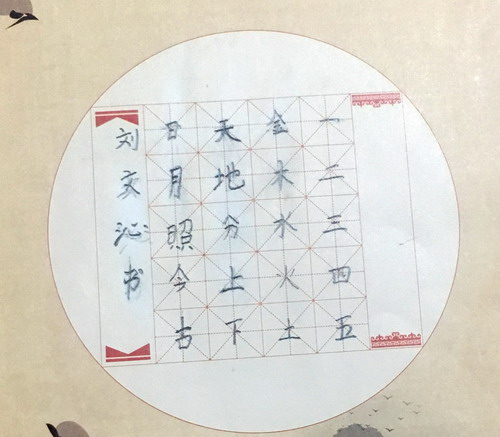 一二三四五
金木水火土
天地分上下
日月照今古
刘文沁书